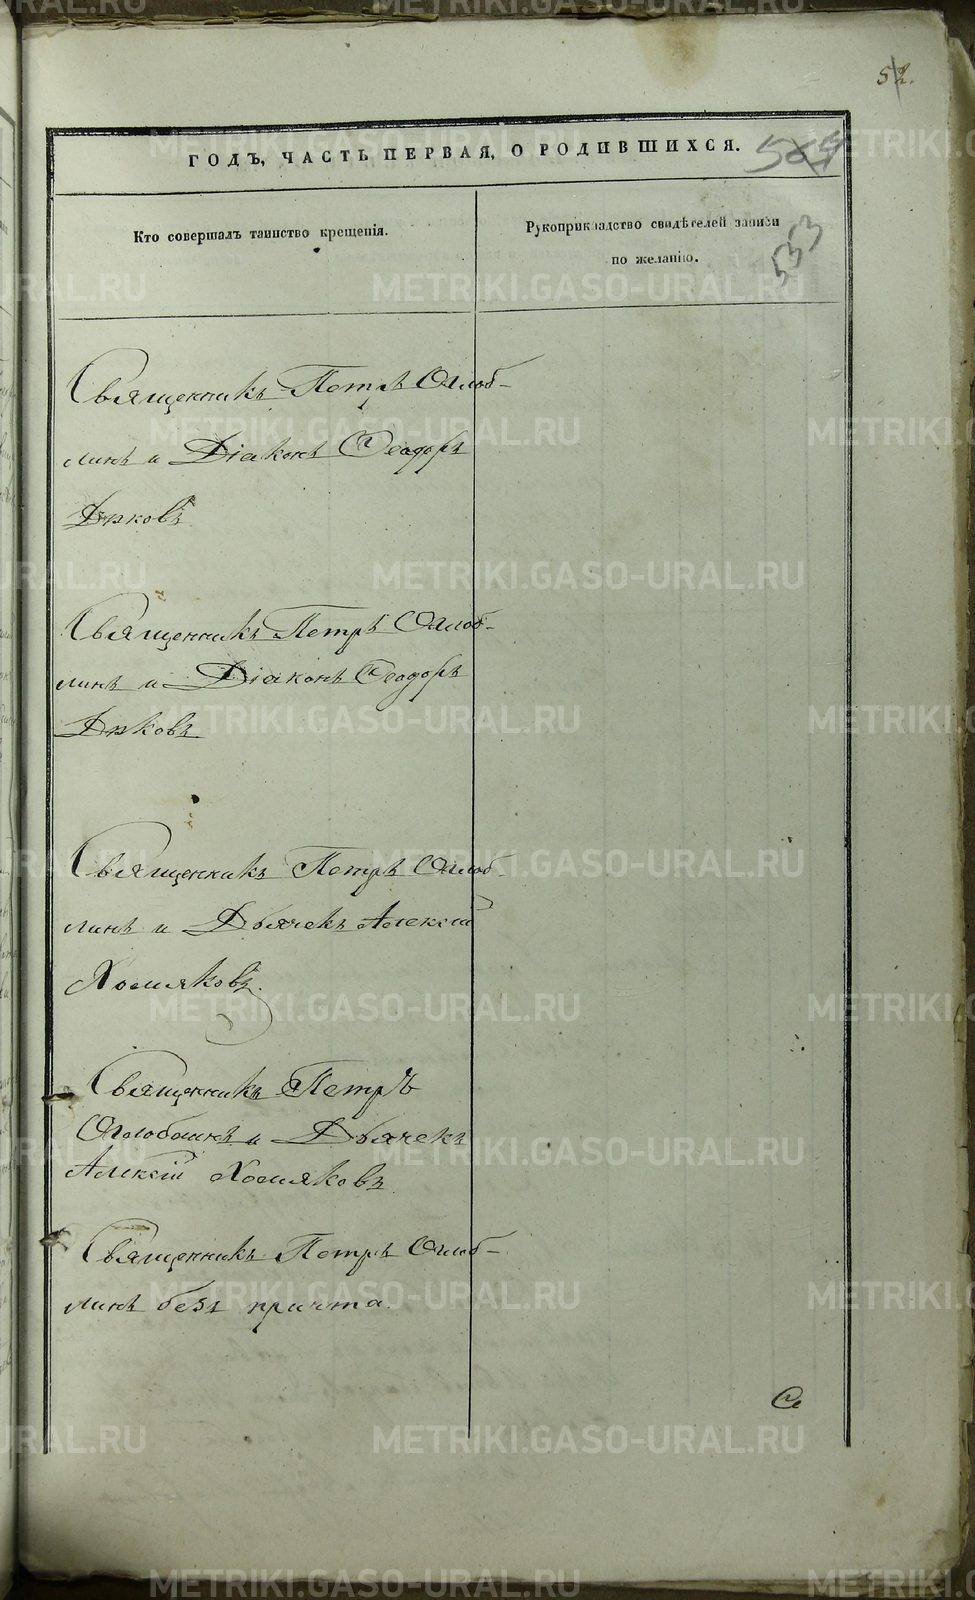 52.
ГОДЪ, ЧАСТЬ ПЕРВАЯ, О РОДИВШИХСЯ.
533
Кто совершалъ таинство крещенія.
Рукоприкладство свидѣтелей записи
по желанію.
Священникъ Петръ Оглоб-
линъ и Діаконъ Ѳеодоръ
Дьяковъ
Священникъ Петръ Оглоб-
линъ и Діаконъ Ѳеодоръ
Дьяковъ
Священникъ Петръ Оглоб-
линъ и Дьячекъ Алексій
Хомяковъ.
Священникъ Петръ
Оглоблинъ и Дьячекъ
Алексій Хомяковъ
Священникъ Петръ Оглоб-
линъ безъ причта.
METRIKI.GASO-URAL.RU